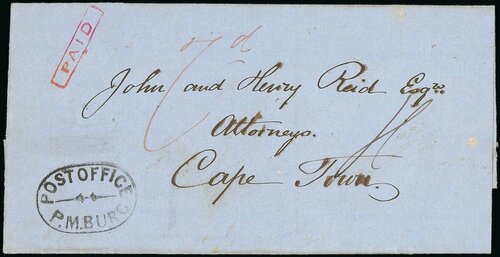 PAID
John and Henry Reid Esqrs
Attorneys.
Cape Town.
POST OFFICE
P.M.BURG